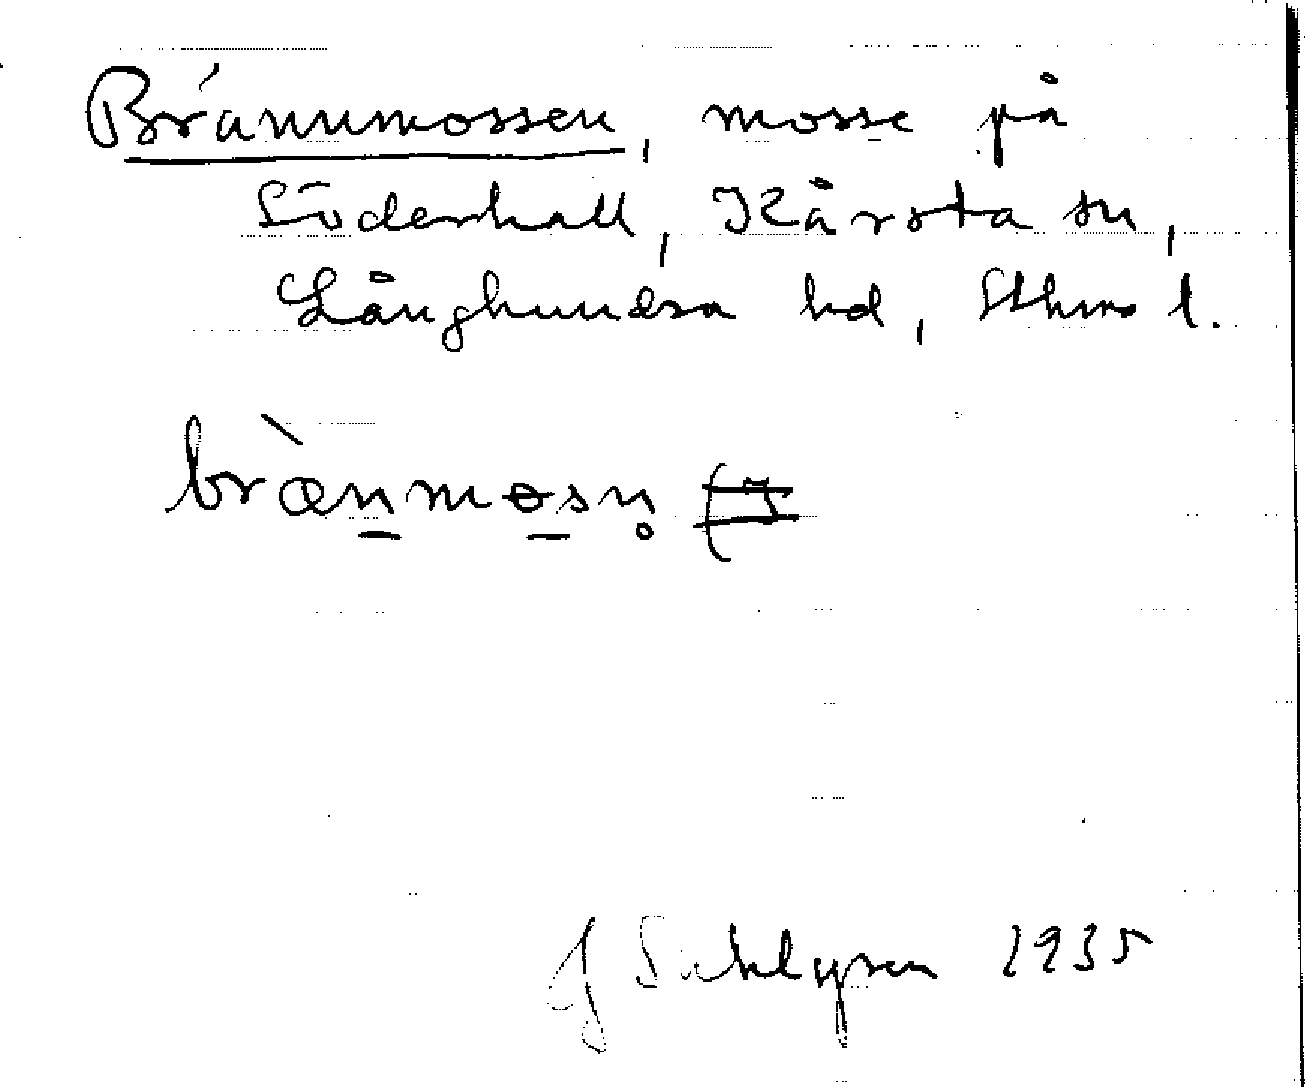 Brännmossen, mosse på
Söderhall, Kårsta sn,
Långhundra hd, Sthms l.
brænmosn̥
J Sahlgren 1935